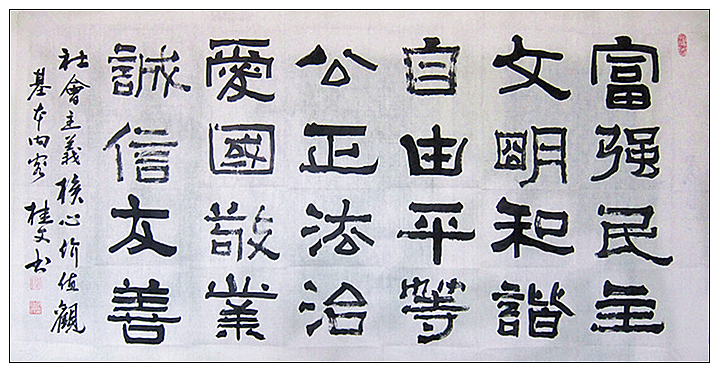 富强民主
文明和諧
自由平等
公正法治
愛國敬業
誠信友善
社會主義核心价值觀
基本内容 桂文书